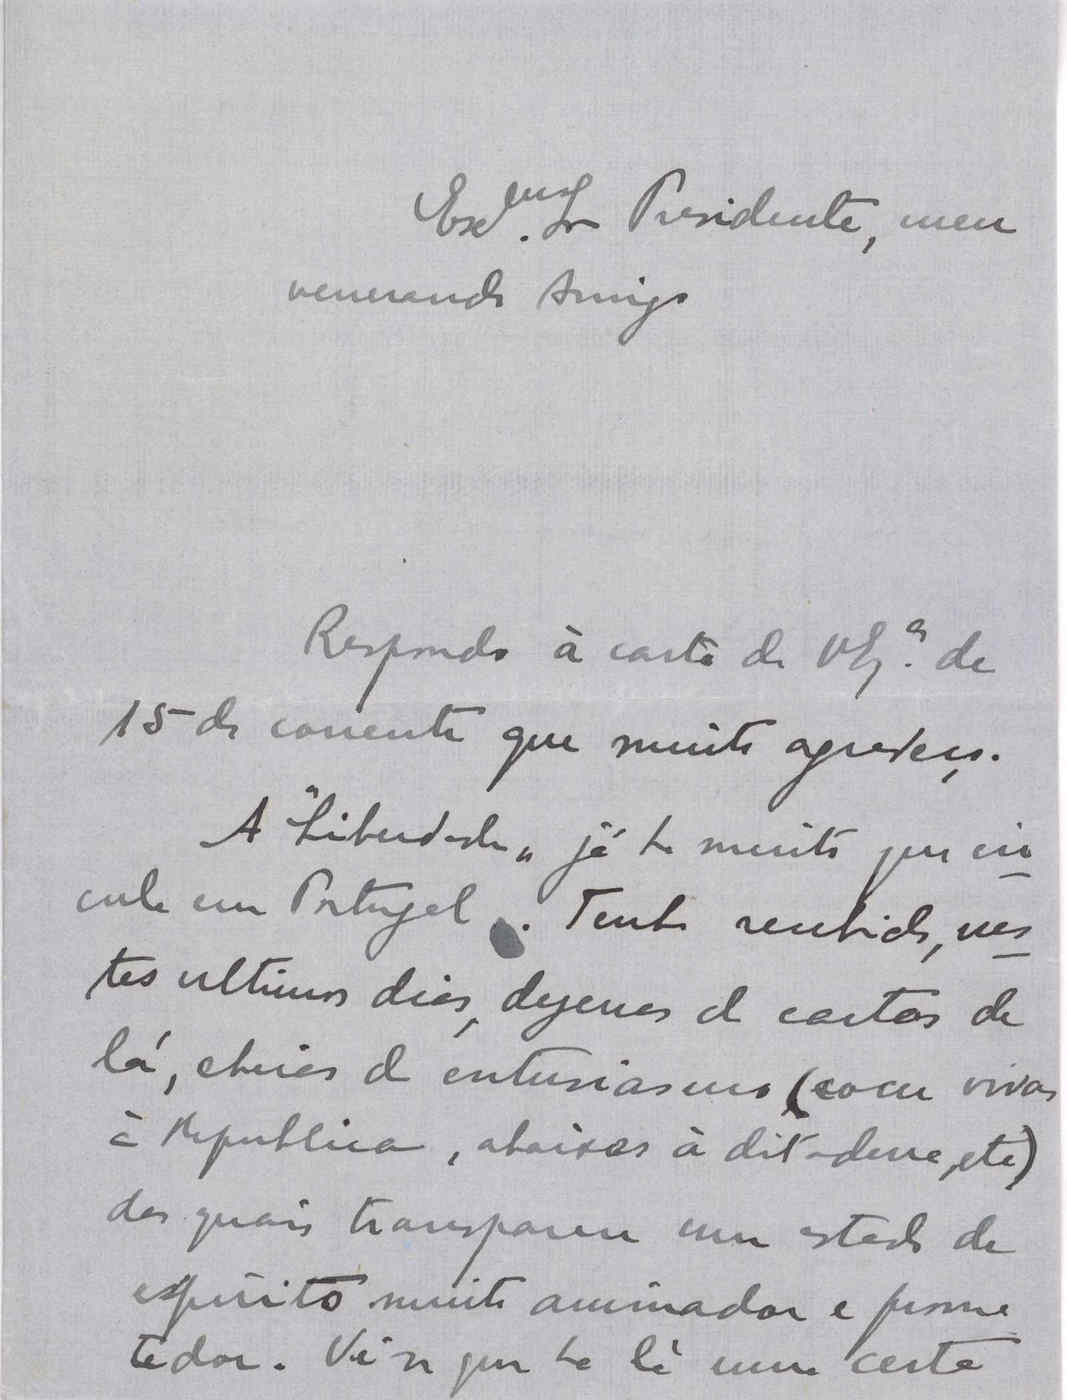 Exc.mo Sr Presidente, meu
venerando Amigo
Respondo à carta de V Ex.a de
15 do corrente que muito agradeço.
A "Liberdade" já ha muito que cir
cula em Portugal. Tenho recebido, nes
tes ultimos dias, dezenas de cartas de
lá, cheias de entusiasmo (com vivas
à Republica, abaixos à ditadura, etc)
das quais transparece um estado de
espírito muito animador e prome
tedor. Vê-se que ha lá uma certa